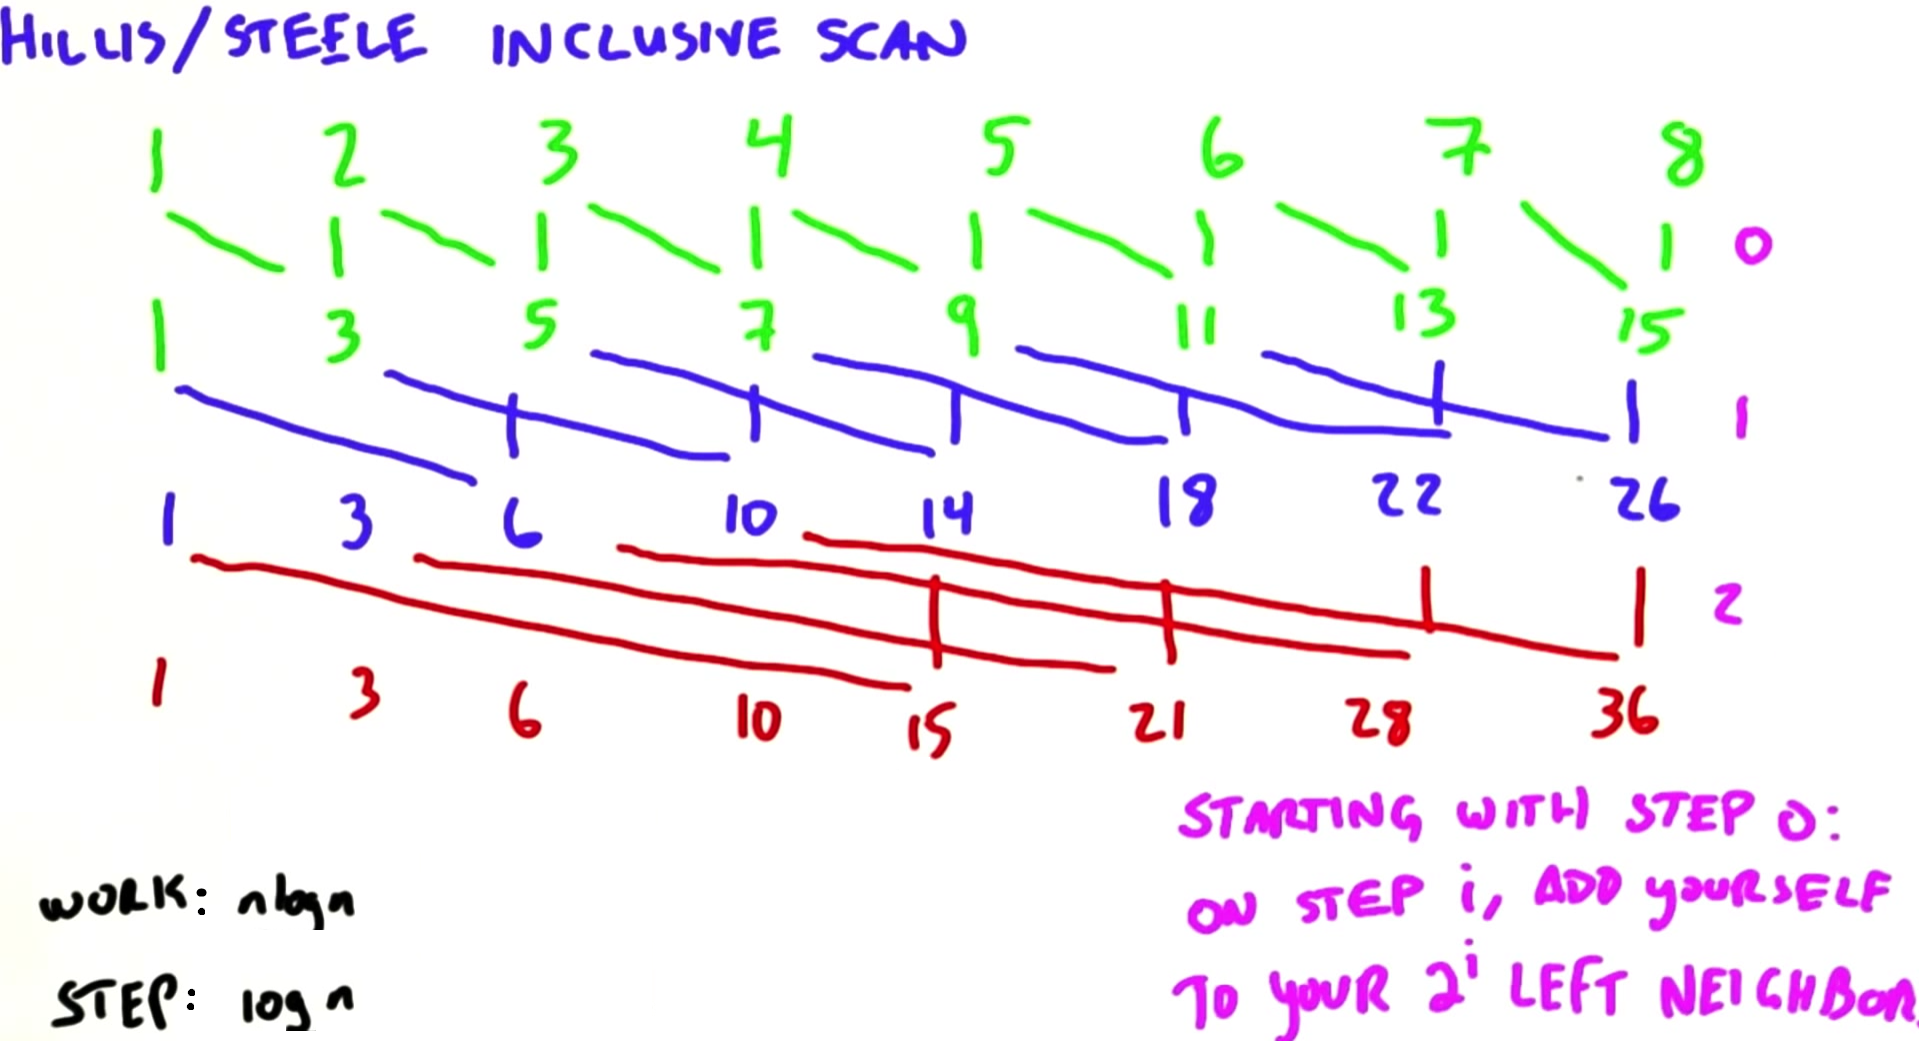 HILLIS/STEELE INCLUSIVE SCAN
1 2 3 4 5 6 7 8
0
1 3 5 7 9 11 13 15
1
1 3 6 10 14 18 22 26
2
1 3 6 10 15 21 28 36
STARTING WITH STEP 0:
ON STEP i, ADD YOURSELF
TO YOUR 2^i LEFT NEIGHBOR.
WORK: n log n
STEP: log n